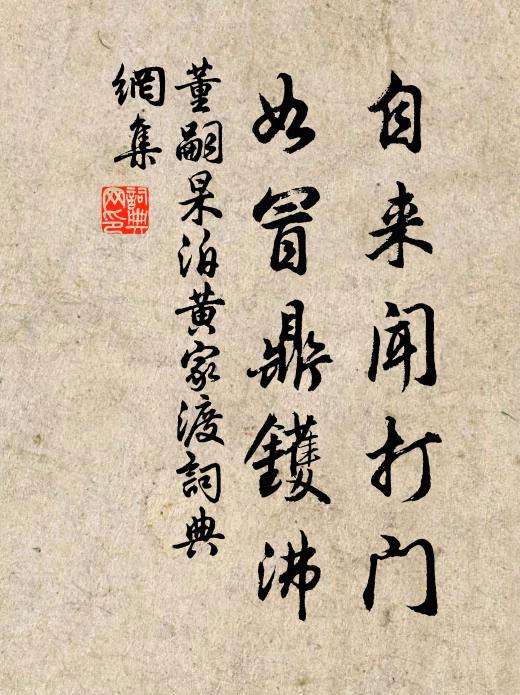 自来闻打门
如冒鼎鑊沸
董嗣杲泊黄家渡詞典
網集
詞典網印